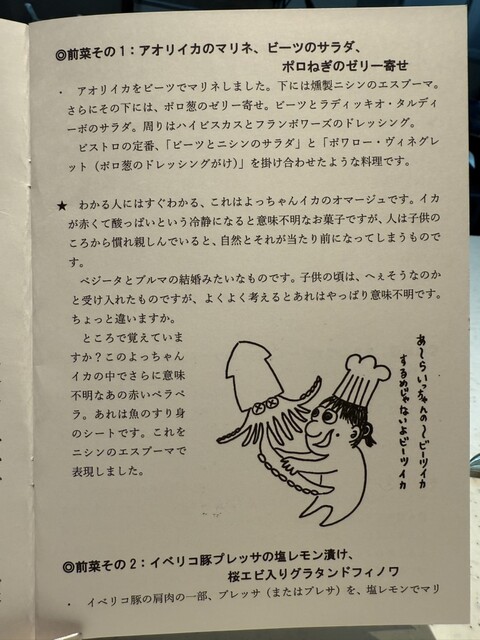 ◎前菜その1：アオリイカのマリネ、ビーツのサラダ、
ポロねぎのゼリー寄せ
・　アオリイカをビーツでマリネしました。下には燻製ニシンのエスプーマ。
さらにその下には、ポロ葱のゼリー寄せ。ビーツとラディッキオ・タルディ
ーボのサラダ。周りはハイビスカスとフランボワーズのドレッシング。
ビストロの定番、「ビーツとニシンのサラダ」と「ポワロー・ヴィネグレ
ット（ポロ葱のドレッシングがけ）」を掛け合わせたような料理です。
★　わかる人にはすぐわかる、これはよっちゃんイカのオマージュです。イカ
が赤くて酸っぱいという冷静になると意味不明なお菓子ですが、人は子供の
ころから慣れ親しんでいると、自然とそれが当たり前になってしまうもので
す。
ベジータとブルマの結婚みたいなものです。子供の頃は、へぇそうなのか
と受け入れたものですが、よくよく考えるとあれはやっぱり意味不明です。
ちょっと違いますか。
ところで覚えていま
すか？このよっちゃん
イカの中でさらに意味
不明なあの赤いペラペ
ラ。あれは魚のすり身
のシートです。これを
ニシンのエスプーマで
表現しました。
あ〜らいっちゃんの〜ビーツイカ
するめじゃないよビーツイカ
◎前菜その2：イベリコ豚プレッサの塩レモン漬け、
桜エビ入りグラタンドフィノワ
・　イベリコ豚の肩肉の一部、プレッサ（またはプレサ）を、塩レモンでマリ